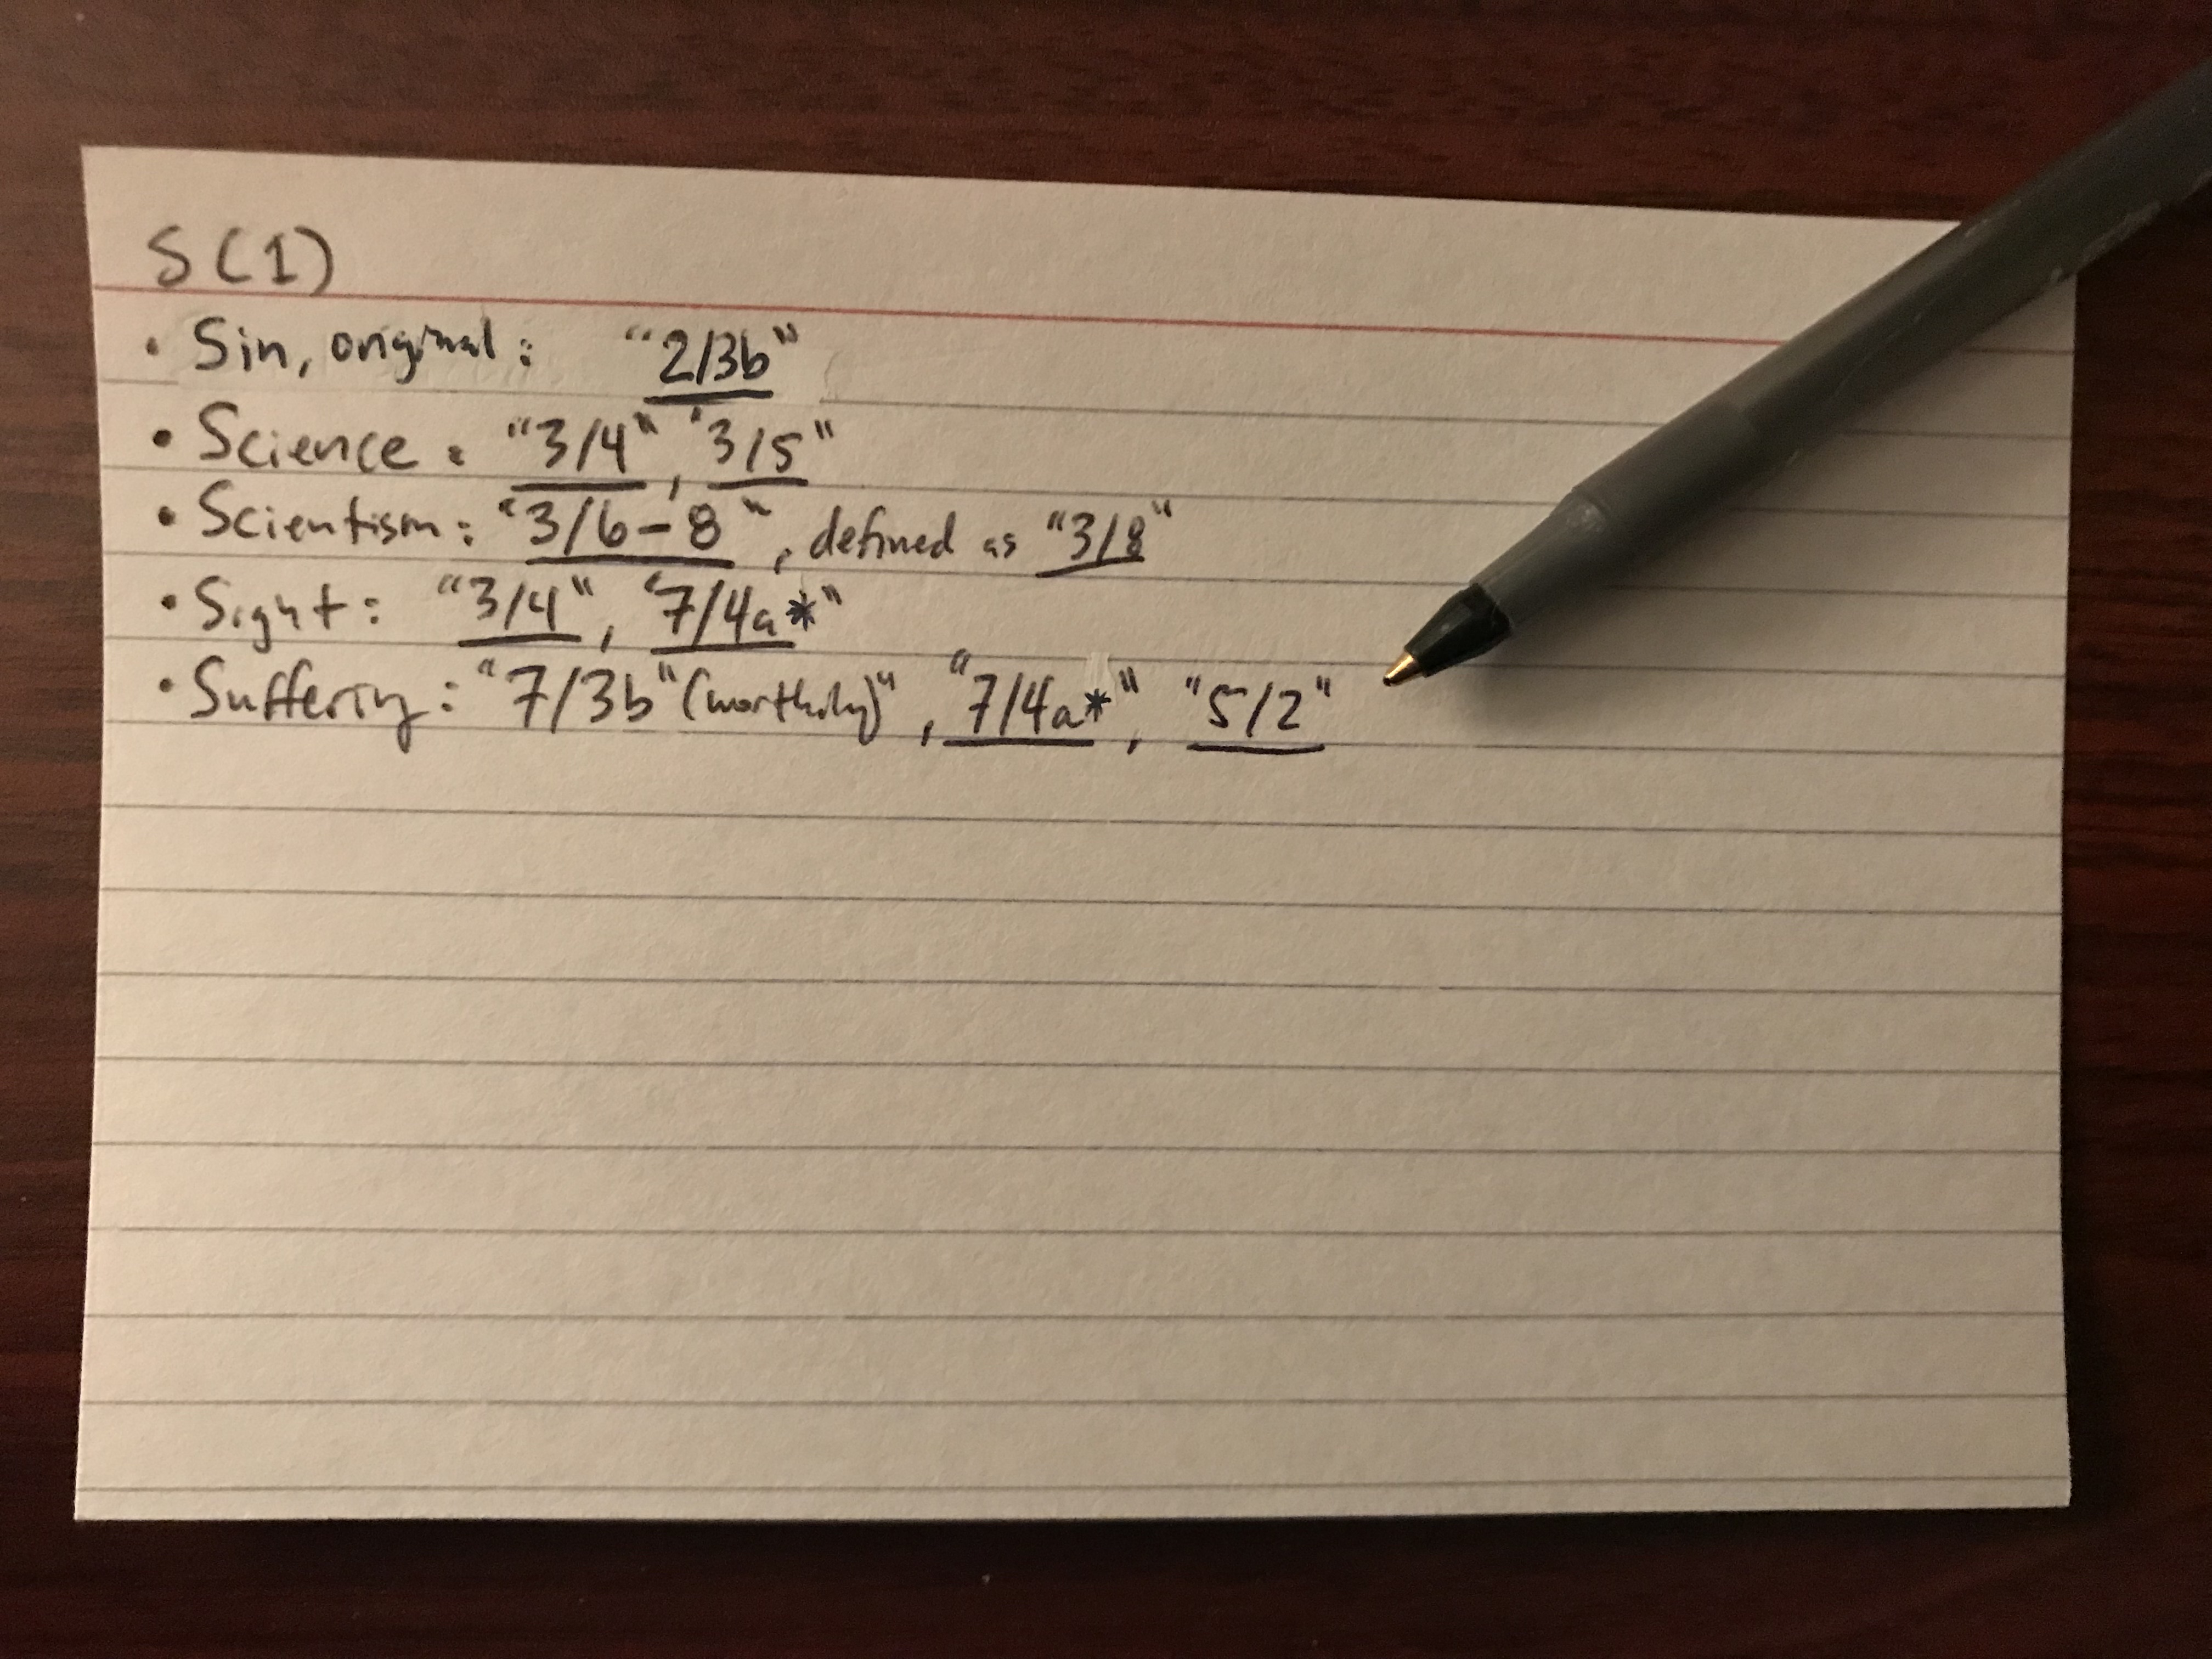 S(1)
• Sin, original: "2/3b"
• Science: "3/4", "3/5"
• Scientism: "3/6-8", defined as "3/8"
• Sight: "3/4", "7/4a*"
• Suffering: "7/3b" (worthily)", "7/4a*", "5/2"